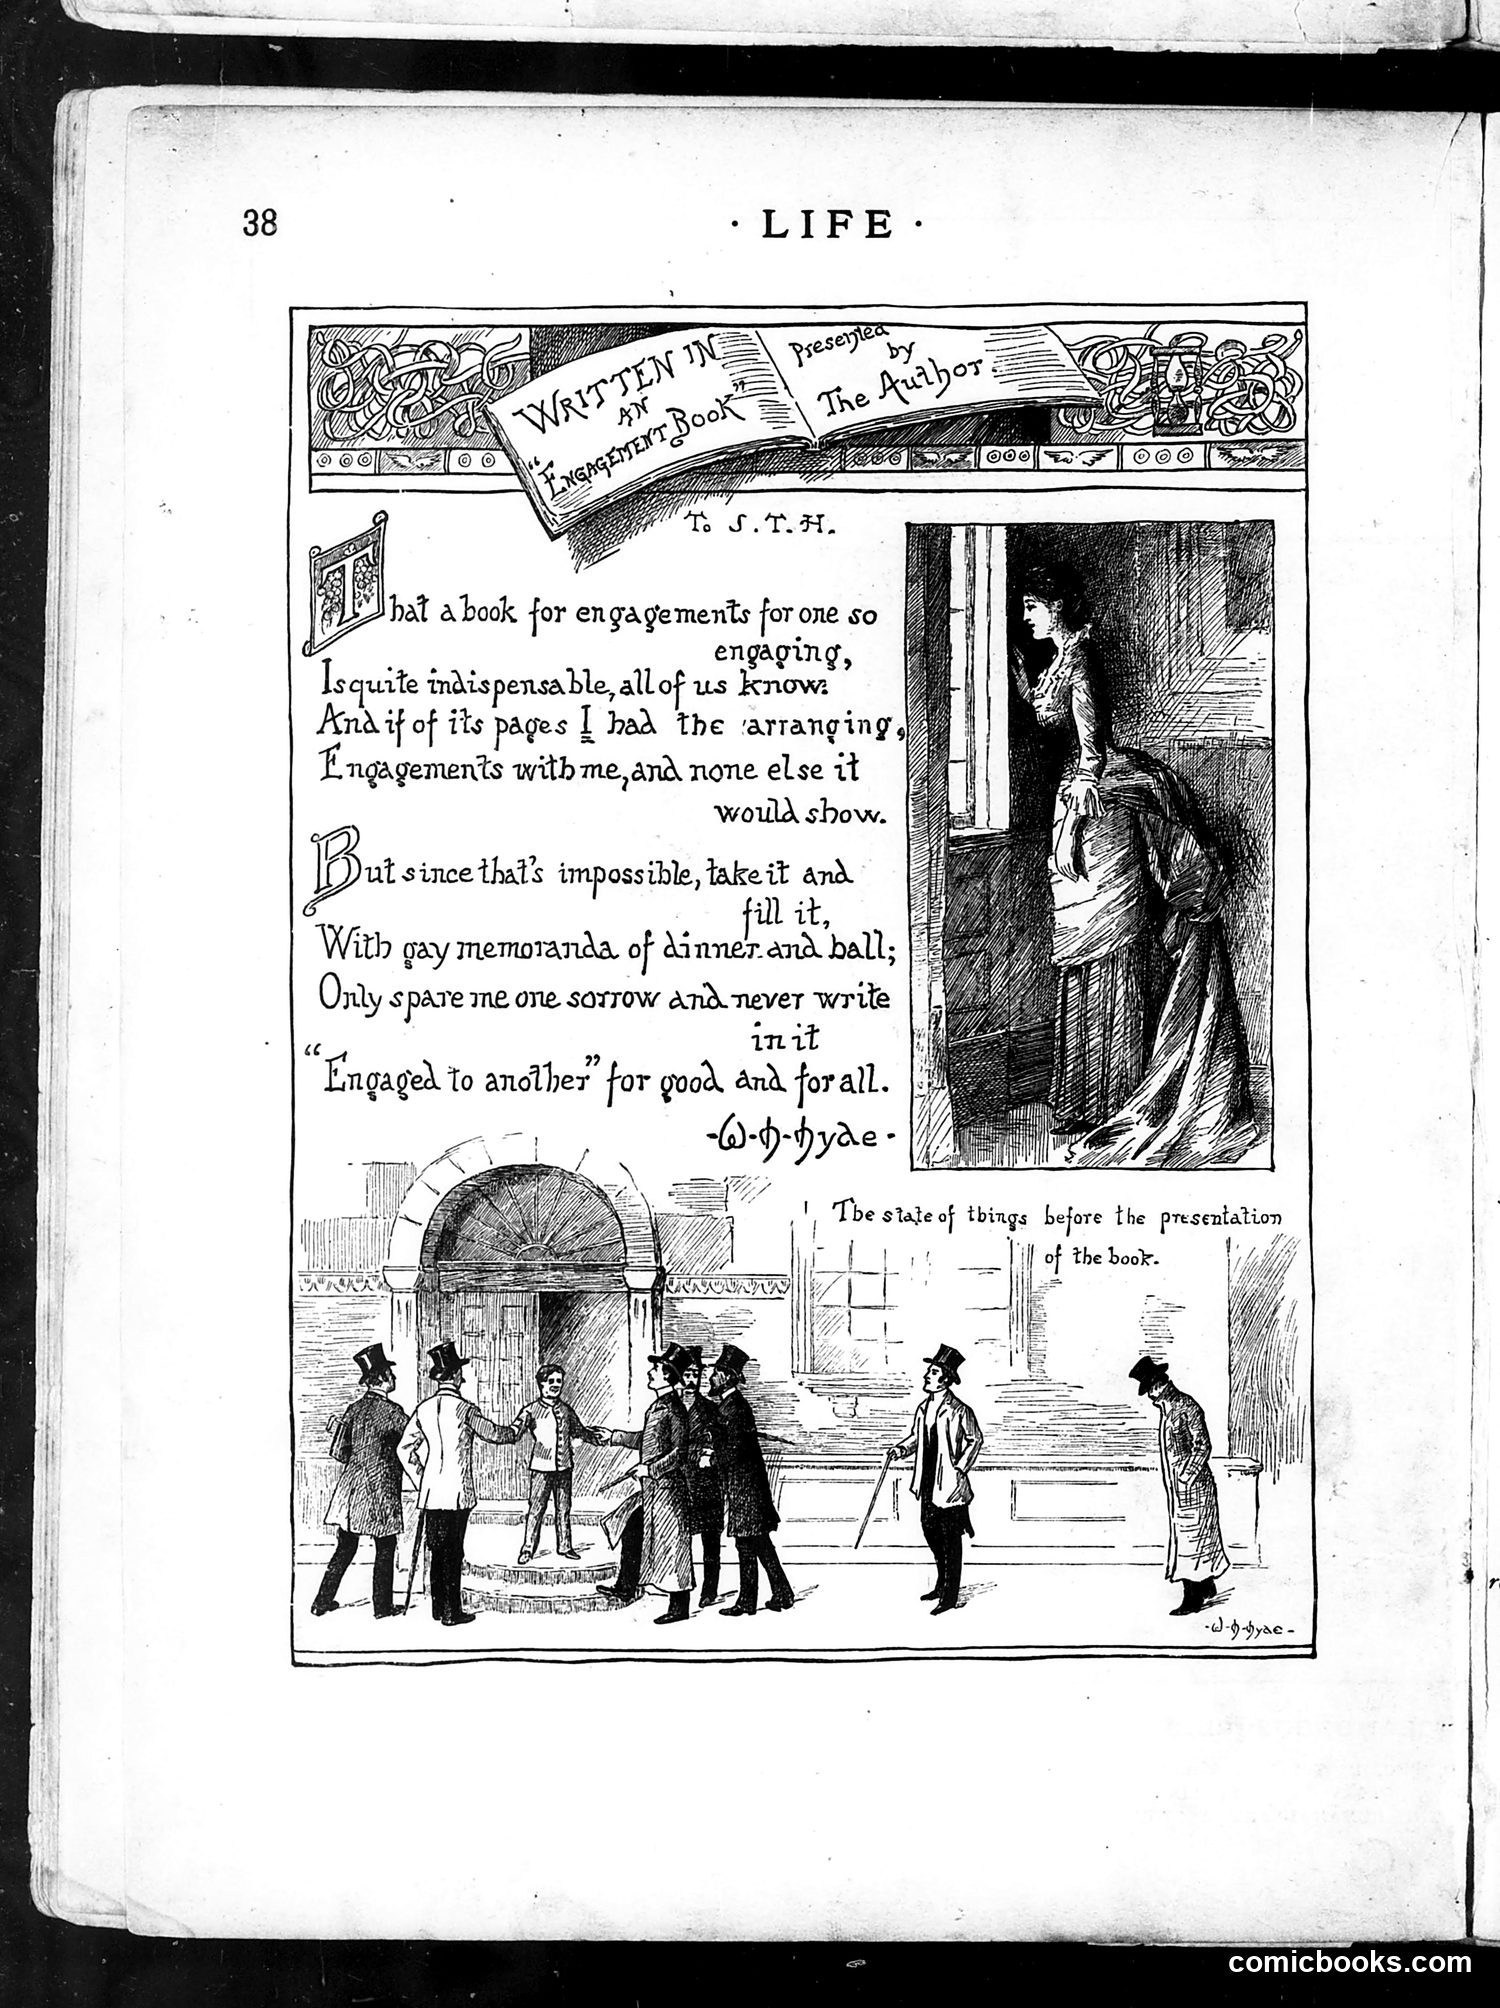 38
· LIFE ·
WRITTEN IN
AN
"ENGAGEMENT BOOK"
Presented
by
The Author.
To S.T.H.
That a book for engagements for one so
engaging,
Is quite indispensable, all of us know:
And if of its pages I had the arranging,
Engagements with me, and none else it
would show.
But since that's impossible, take it and
fill it,
With gay memoranda of dinner and ball;
Only spare me one sorrow and never write
in it
"Engaged to another" for good and for all.
-W-H-Hyde-
The state of things before the presentation
of the book.
-W-H-Hyde-
comicbooks.com